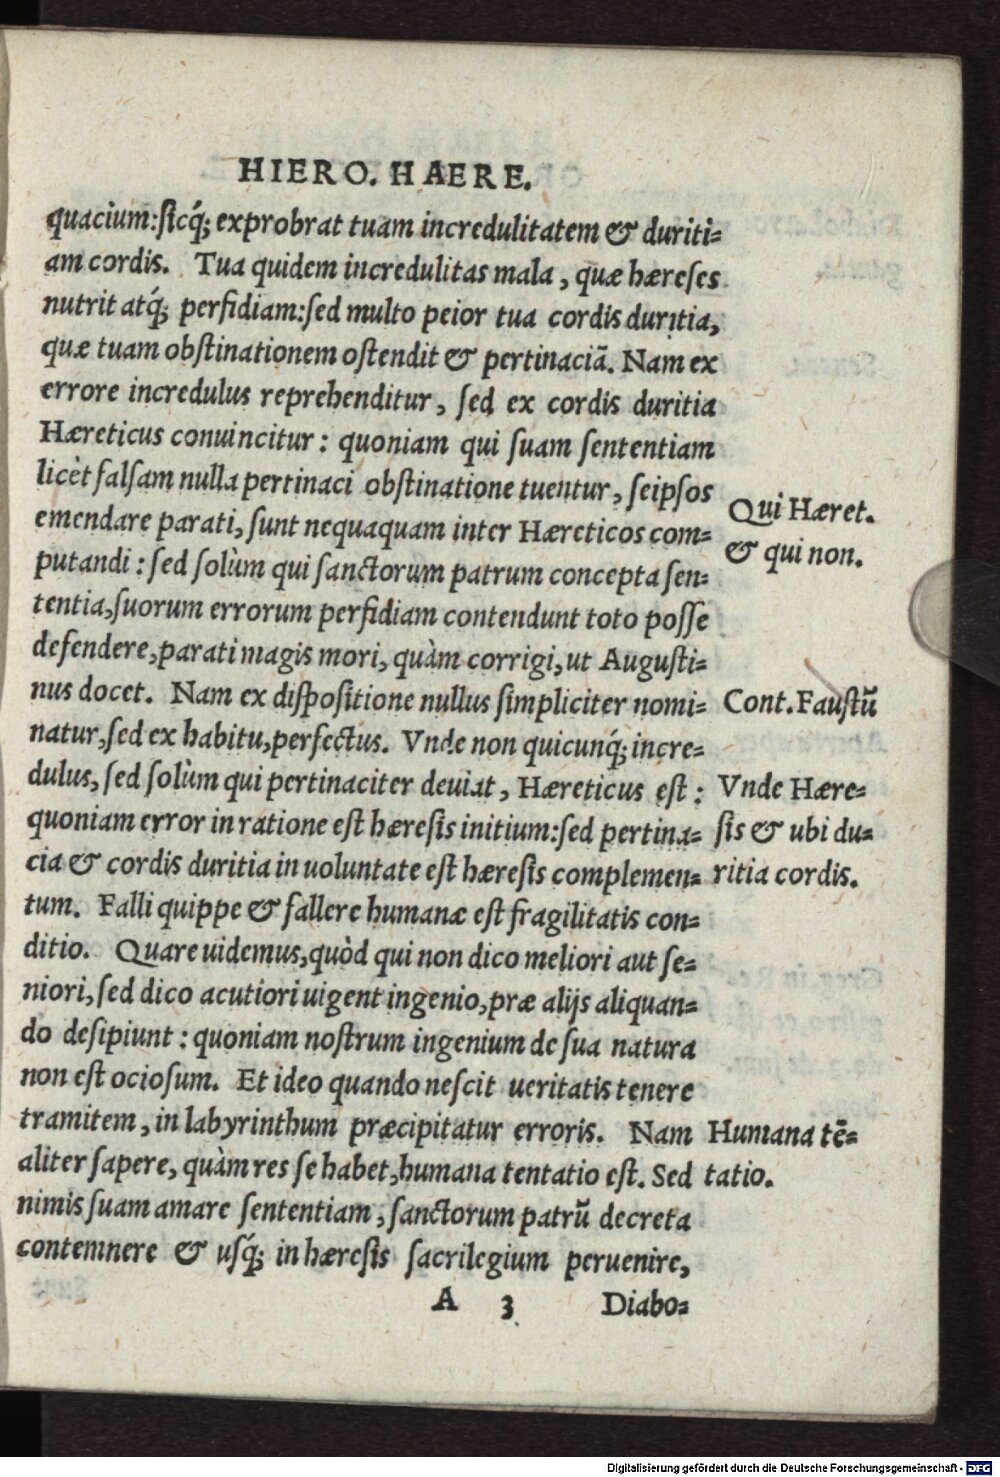 HIERO. HAERE.
quacium:ſicq́; exprobrat tuam incredulitatem & duriti=
am cordis. Tua quidem incredulitas mala, quæ hæreſes
nutrit atq́; perfidiam:ſed multo peior tua cordis duritia,
quæ tuam obſtinationem oſtendit & pertinaciā. Nam ex
errore incredulus reprehenditur, ſed ex cordis duritia
Hæreticus conuincitur: quoniam qui ſuam ſententiam
licèt falſam nulla pertinaci obſtinatione tuentur, ſeipſos
emendare parati, ſunt nequaquam inter Hæreticos com=
putandi: ſed ſolùm qui ſanctorum patrum concepta ſen=
tentia,ſuorum errorum perfidiam contendunt toto poſſe
defendere,parati magis mori, quàm corrigi,ut Auguſti=
nus docet. Nam ex diſpoſitione nullus ſimpliciter nomi=
natur,ſed ex habitu,perfectus. Vnde non quicunq́; incre=
dulus, ſed ſolùm qui pertinaciter deuiat, Hæreticus eſt:
quoniam error in ratione eſt hæreſis initium:ſed pertina=
cia & cordis duritia in uoluntate eſt hæreſis complemen=
tum. Falli quippe & fallere humanæ eſt fragilitatis con=
ditio. Quare uidemus,quòd qui non dico meliori aut ſe=
niori, ſed dico acutiori uigent ingenio,præ alijs aliquan=
do deſipiunt: quoniam noſtrum ingenium de ſua natura
non eſt ocioſum. Et ideo quando neſcit ueritatis tenere
tramitem, in labyrinthum præcipitatur erroris. Nam
aliter ſapere, quàm res ſe habet,humana tentatio eſt. Sed
nimis ſuam amare ſententiam, ſanctorum patrū decreta
contemnere & uſq́; in hæreſis ſacrilegium peruenire,
A 3 Diabo=
Qui Hæret.
& qui non.
Cont. Fauſtū
Vnde Hære=
ſis & ubi du=
ritia cordis.
Humana tē=
tatio.
Digitalisierung gefördert durch die Deutsche Forschungsgemeinschaft - DFG